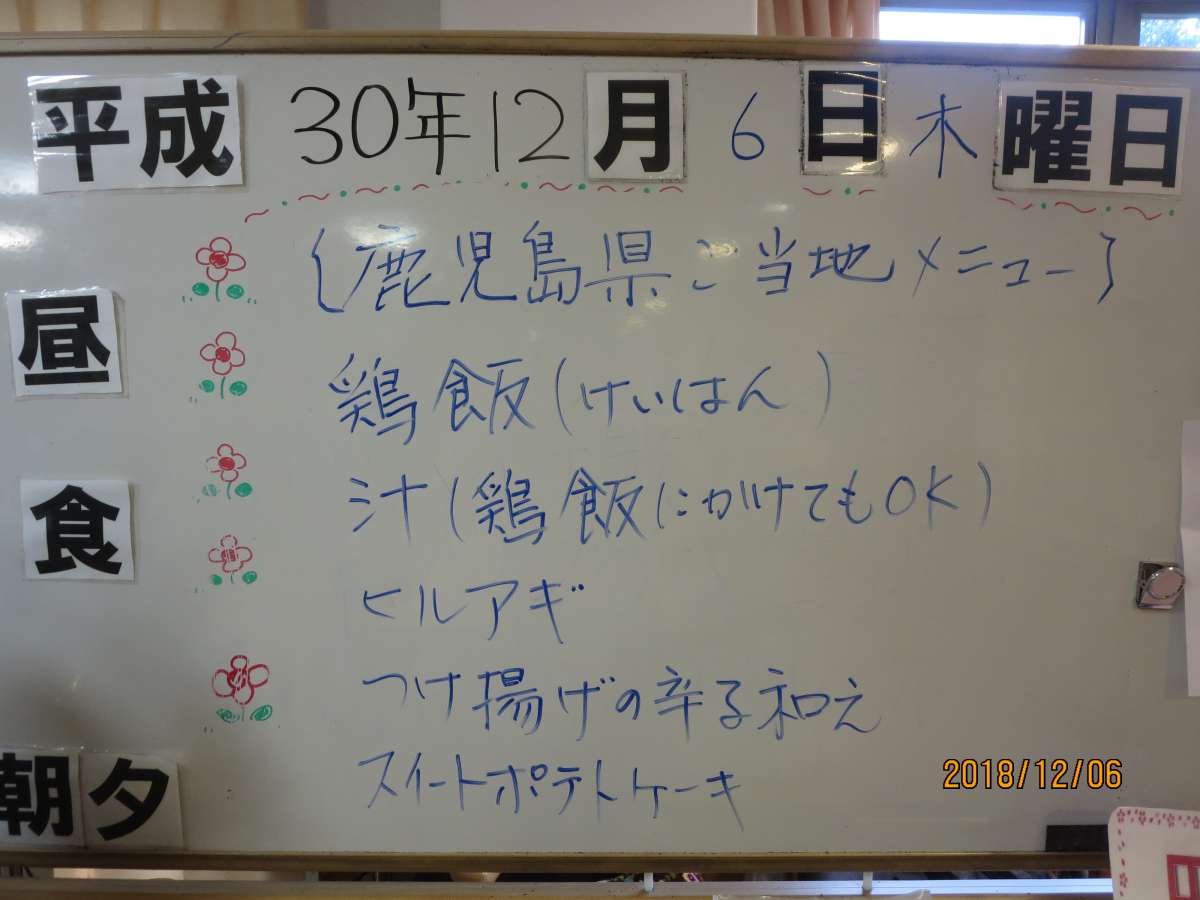 平成 30年12月 6日 木曜日
〔鹿児島県ご当地メニュー〕
昼食
鶏飯(けいはん)
汁(鶏飯にかけてもOK)
ヒルアギ
つけ揚げの辛子和え
スイートポテトケーキ
朝夕
2018/12/06